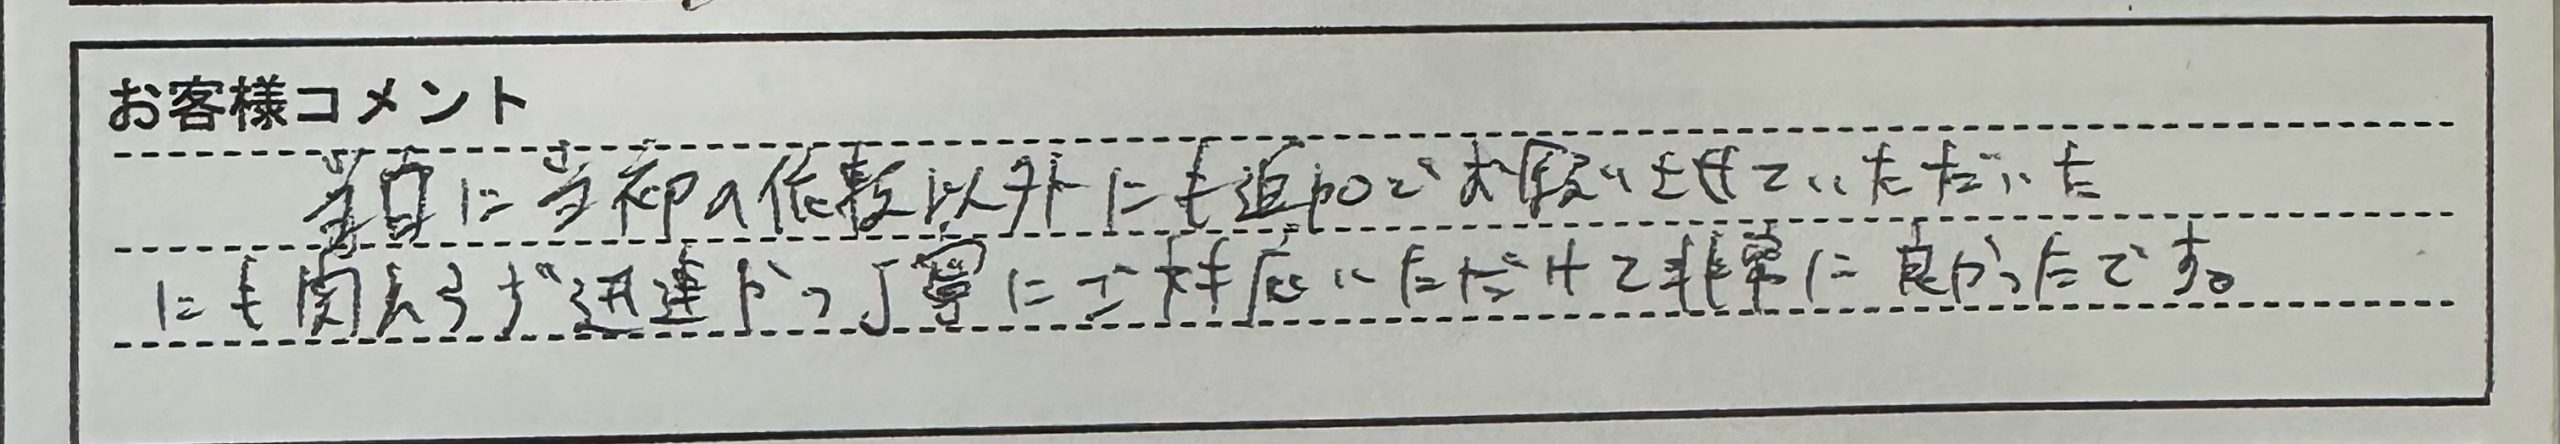 お客様コメント
当日に当初の依頼以外にも追加でお願いさせていただいた
にも関わらず迅速かつ丁寧にご対応いただけて非常に良かったです。